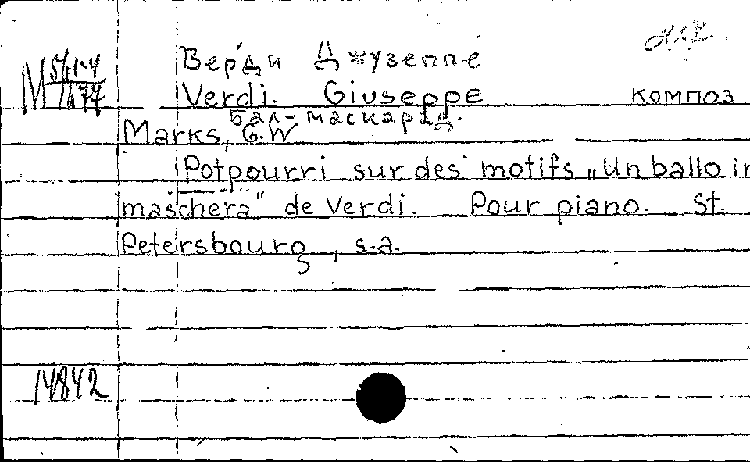 Верди Джузеппе
Verdi. Giuseppe композ
Бал-маскарад.
Marks, G.W
Potpourri sur des motifs „Un ballo in
maschera" de Verdi. Pour piano. St.
Petersbourg, s.a.
14842